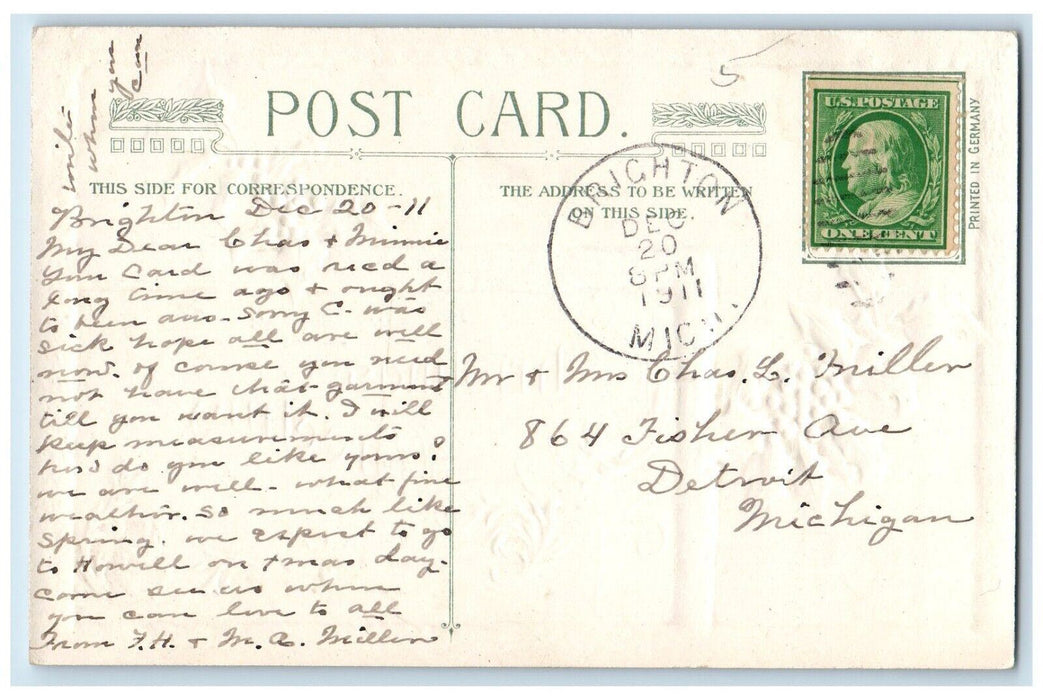 write
when you
can
5
POST CARD.
THIS SIDE FOR CORRESPONDENCE.
THE ADDRESS TO BE WRITTEN
ON THIS SIDE.
U.S. POSTAGE
ONE CENT
PRINTED IN GERMANY
BRIGHTON
DEC
20
8 PM
1911
MICH.
Brighton Dec 20-11
My Dear Chas & Minnie
Your Card was recd a
long time ago & ought
to been ans. Sorry C. was
sick hope all are well
now. of course you need
not have that garment
till you want it. I will
keep measurements
how do you like yours?
we are well - what fine
weather. so much like
Spring. we expect to go
to Howell on Xmas day.
come see us when
you can love to all
From F.H. & M.A. Miller
Mr & Mrs Chas. L. Miller
864 Fisher Ave
Detroit
Michigan